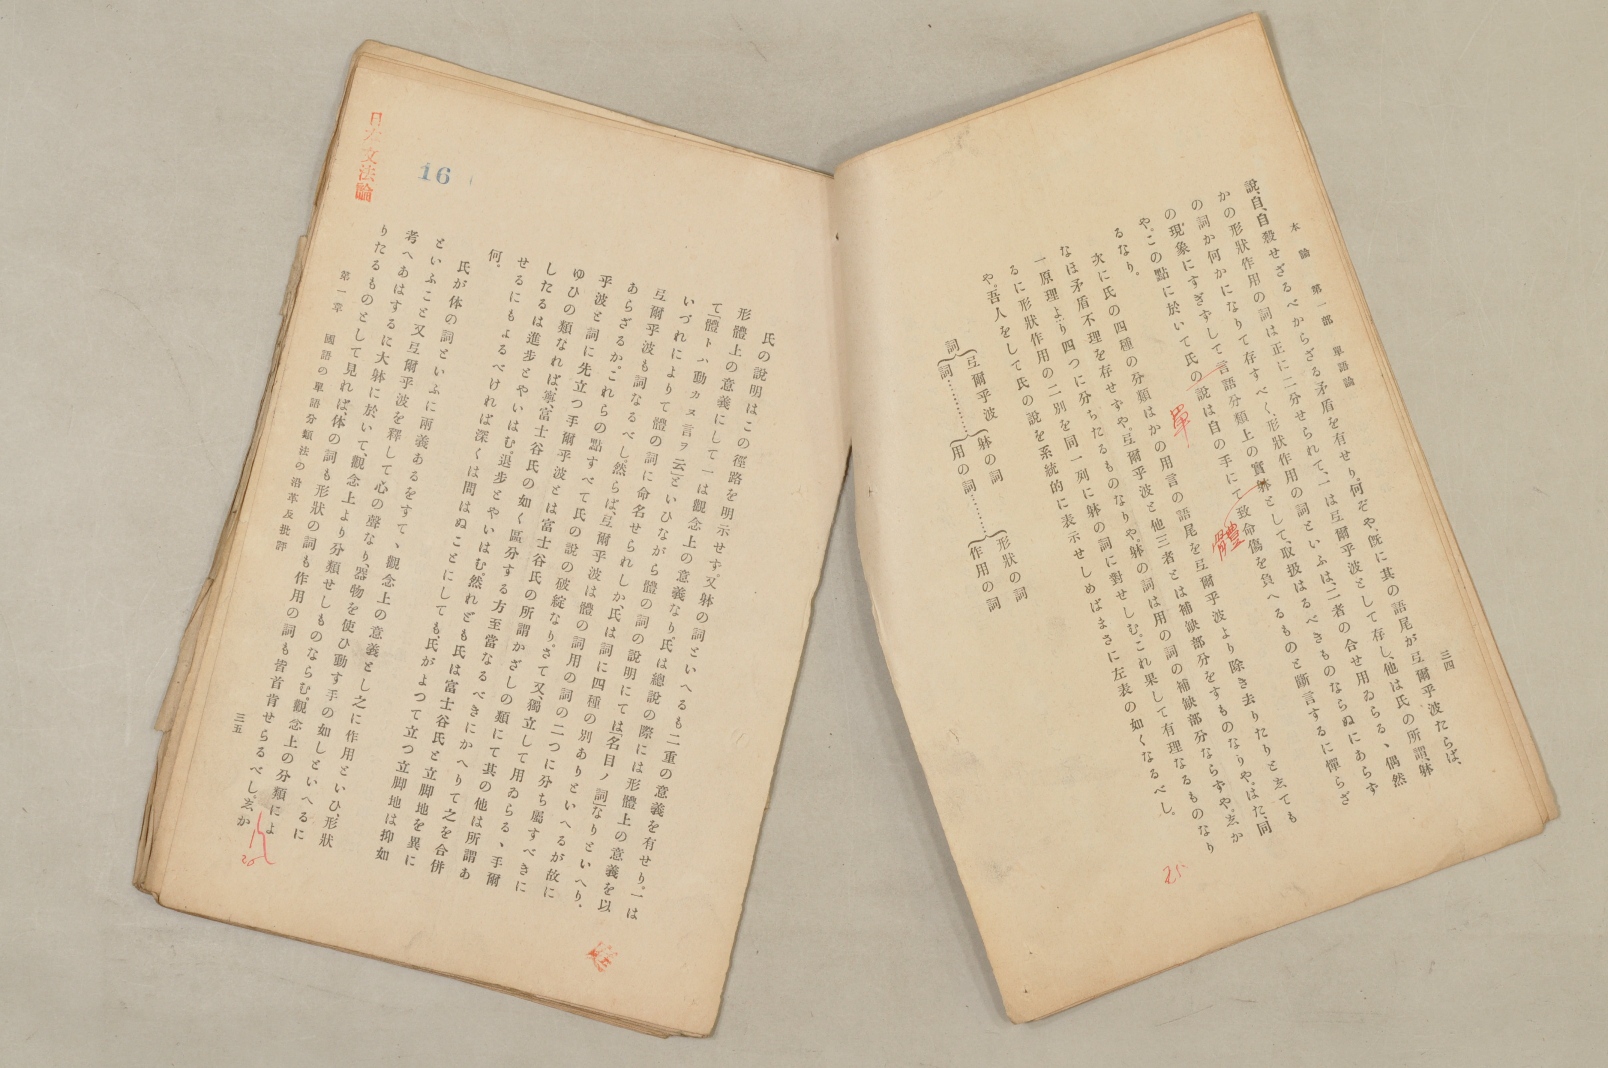 本論 第一部 單語論
三四
説、自、自殺せざるべからざる矛盾を有せり。何ぞや、既に其の語尾が亙爾乎波たらば、
かの形狀作用の詞は正に二分せられて、一は亙爾乎波として存し、他は氏の所謂躰
の詞か何かになりて存すべく、形狀作用の詞といふは、二者の合せ用ゐらるゝ偶然
の現象にすぎずして言語分類上の實躰として、取扱はるべきものならぬにあらず
や。この點に於いて氏の說は自の手にて致命傷を負へるものと斷言するに憚らざ
るなり。
次に氏の四種の分類はかの用言の語尾を亙爾乎波より除き去りたりと云ても
なほ矛盾不理を存せずや。亙爾乎波と他三者とは補缺部分をすものなりや。はた、同
一原理より四つに分ちたるものなりや。躰の詞は用の詞の補缺部分ならずや。云か
るに形狀作用の二別を同一列に躰の詞に對せしむ。これ果して有理なるものなり
や。吾人をして氏の說を系統的に表示せしめばまさに左表の如くなるべし。
詞
亙爾乎波
詞
躰の詞
用の詞
形狀の詞
作用の詞
單
體
25
氏の說明はこの徑路を明示せず。又躰の詞といへるも二重の意義を有せり。一は
形體上の意義にして一は觀念上の意義なり。氏は總說の際には形體上の意義を以
て「體トハ動カヌ言ヲ云」といひながら體の詞の說明にては「名目ノ詞」なりといへり。
いづれによりて體の詞に命名せられしか、氏は詞に四種の別ありといへるが故に
亙爾乎波も詞なるべし。然らば、亙爾乎波は體の詞用の詞の二つに分ち屬すべきに
あらざるか。これらの點すべて氏の說の破綻なり。さて又、獨立して用ゐらるゝ手爾
乎波と詞に先立つ手爾乎波とは富士谷氏の所謂かざしの類にて其の他は所謂あ
ゆひの類なれば、寧富士谷氏の如く區分する方至當なるべきにかへりて之を合併
したるは進步とやいはむ。退步とやいはむ。然れども氏は富士谷氏と立脚地を異に
せるにもよるべければ深くは問はぬことにしても氏がよつて立つ立脚地は抑如
何。
氏が体の詞といふに兩義あるをすて、觀念上の意義とし之に作用といひ、形狀
といふこと又亙爾乎波を釋して心の聲なり、器物を使ひ動す手の如しといへるに
考へあはするに大躰に於いて、觀念上より分類せしものならむ。觀念上の分類によ
りたるものとして見れば体の詞も形狀の詞も作用の詞も皆首肯せらるべし。云か
第一章 國語の單語分類法の沿革及批評
三五
日本文法論
16
20